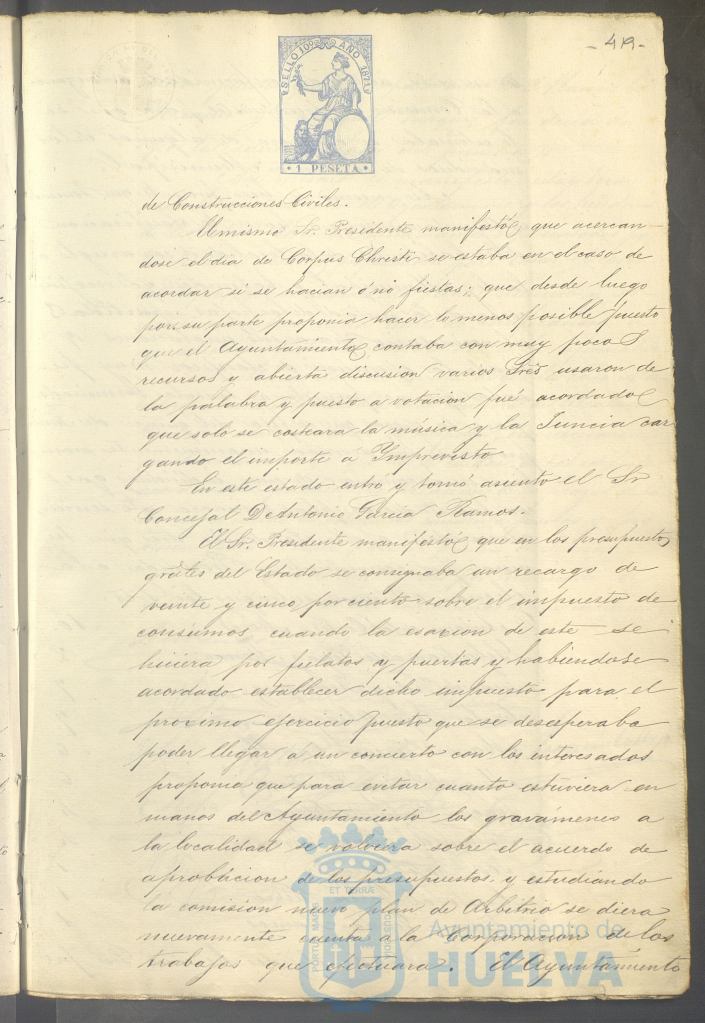 - 49 -
SELLO 10º AÑO 1871
1 PESETA
de Construcciones Civiles.
El mismo Sr. Presidente manifestó que acercan-
dose el dia de Corpus Christi se estaba en el caso de
acordar si se hacian ó nó fiestas; que desde luego
por su parte proponia hacer lo menos posible puesto
que el Ayuntamiento contaba con muy pocos
recursos y abierta discusion varios Sres usaron de
la palabra y puesto a votacion fué acordado
que solo se costeara la música y la Juncia car
gando el importe a Ymprevisto
En este estado entro y tomó asiento el Sr
Concejal Dn Antonio Garcia Ramos.
El Sr. Presidente manifestó que en los presupuestos
grales del Estado se consignaba un recargo de
veinte y cinco por ciento sobre el impuesto de
consumos, cuando la esaccion de este se
hiciera por fielatos y puertas y habiendose
acordado establecer dicho impuesto para el
proximo ejercicio puesto que se desesperaba
poder llegar á un concierto con los interesados
proponia que para evitar cuanto estuviera en
manos del Ayuntamiento los gravámenes a
la localidad se volviera sobre el acuerdo de
aprobacion de los presupuestos y estudiando
la comision nuevo plan de Arbitrio se diera
nuevamente cuenta a la Corporacion de los
trabajos que efectuara. El Ayuntamiento
Ayuntamiento de
HUELVA